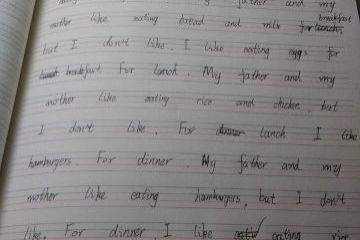 father and my
mother like eating bread and milk for breakfast
but I don't like. I like eating eggs for
breakfast For lunch. My father and my
mother like eating rice and chicken, but
I don't like. For lunch I like
hamburgers. For dinner. My father and my
mother like eating hamburgers, but I don't
like. For dinner I like eating rice